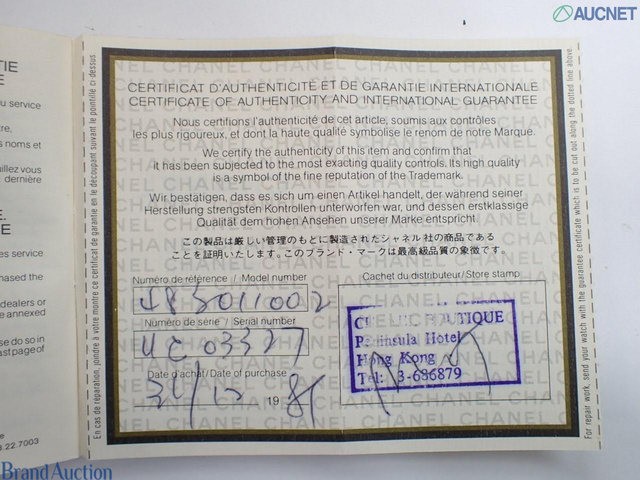 AUCNET
CERTIFICAT D'AUTHENTICITÉ ET DE GARANTIE INTERNATIONALE
CERTIFICATE OF AUTHENTICITY AND INTERNATIONAL GUARANTEE
Nous certifions l'authenticité de cet article, soumis aux contrôles
les plus rigoureux, et dont la haute qualité symbolise le renom de notre Marque.
We certify the authenticity of this item and confirm that
it has been subjected to the most exacting quality controls. Its high quality
is a symbol of the fine reputation of the Trademark.
Wir bestätigen, dass es sich um einen Artikel handelt, der während seiner
Herstellung strengsten Kontrollen unterworfen war, und dessen erstklassige
Qualität dem hohen Ansehen unserer Marke entspricht.
この製品は厳しい管理のもとに製造されたシャネル社の商品である
ことを証明いたします。このブランド・マークは最高級品質の象徴です。
Numéro de référence / Model number
Numéro de série / Serial number
UC 03327
Date d'achat/Date of purchase
19
Cachet du distributeur/Store stamp
BOUTIQUE
Peninsula Hotel
Hong Kong
Tel: 3-686879
En cas de réparation, joindre à votre montre ce certificat de garantie en le découpant suivant le pointillé ci-dessus.
For repair work, send your watch with the guarantee certificate which is to be cut out along the dotted line above.
TIE
E
u service
tre,
s noms et
uillez vous
dernière
E.
E
es service
hased the
dealers or
e annexed
e do so in
ast page of
.22.7003
Brand Auction